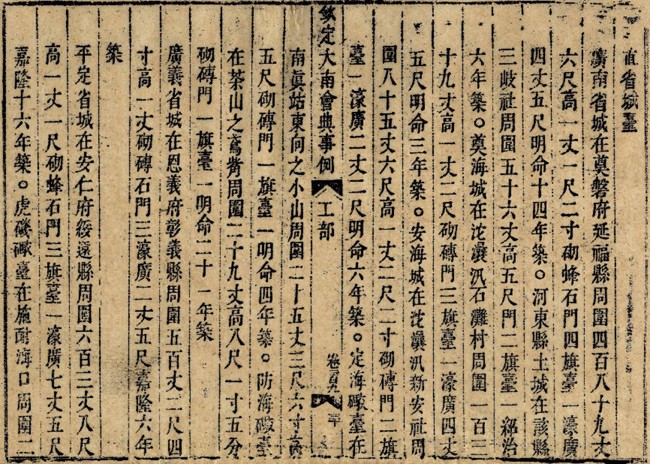 直省城臺
廣南省城在奠磐府延福縣周圍四百八十九丈
六尺高一丈一尺二寸砌蜂石門四旗臺一濠廣
四丈五尺明命十四年築○河東縣土城在該縣
三岐社周圍五十六丈高五尺門二旗臺一紹治
六年築○奠海城在沱㶞汛石灘村周圍一百三
十九丈高一丈二尺砌磚門三旗臺一濠廣四丈
五尺明命三年築○安海城在沱㶞汛新安社周
圍八十五丈六尺高一丈二尺二寸砌磚門二旗
臺一濠廣二丈二尺明命六年築○定海礮臺在
欽定大南會典事例 工部 卷二百九
南眞站東向之小山周圍二十五丈三尺六寸高
五尺砌磚門一旗臺一明命四年築○防海礮臺
在茶山之西嶺周圍二十九丈高八尺一寸五分
砌磚門一旗臺一明命二十一年築
廣義省城在思義府彰義縣周圍五百丈二尺四
寸高一丈砌磚石門三濠廣二丈五尺嘉隆六年
築
平定省城在安仁府綏遠縣周圍六百三丈八尺
高一丈一尺砌蜂石門三旗臺一濠廣七丈五尺
嘉隆十六年築○虎磯礮臺在施耐海口周圍二